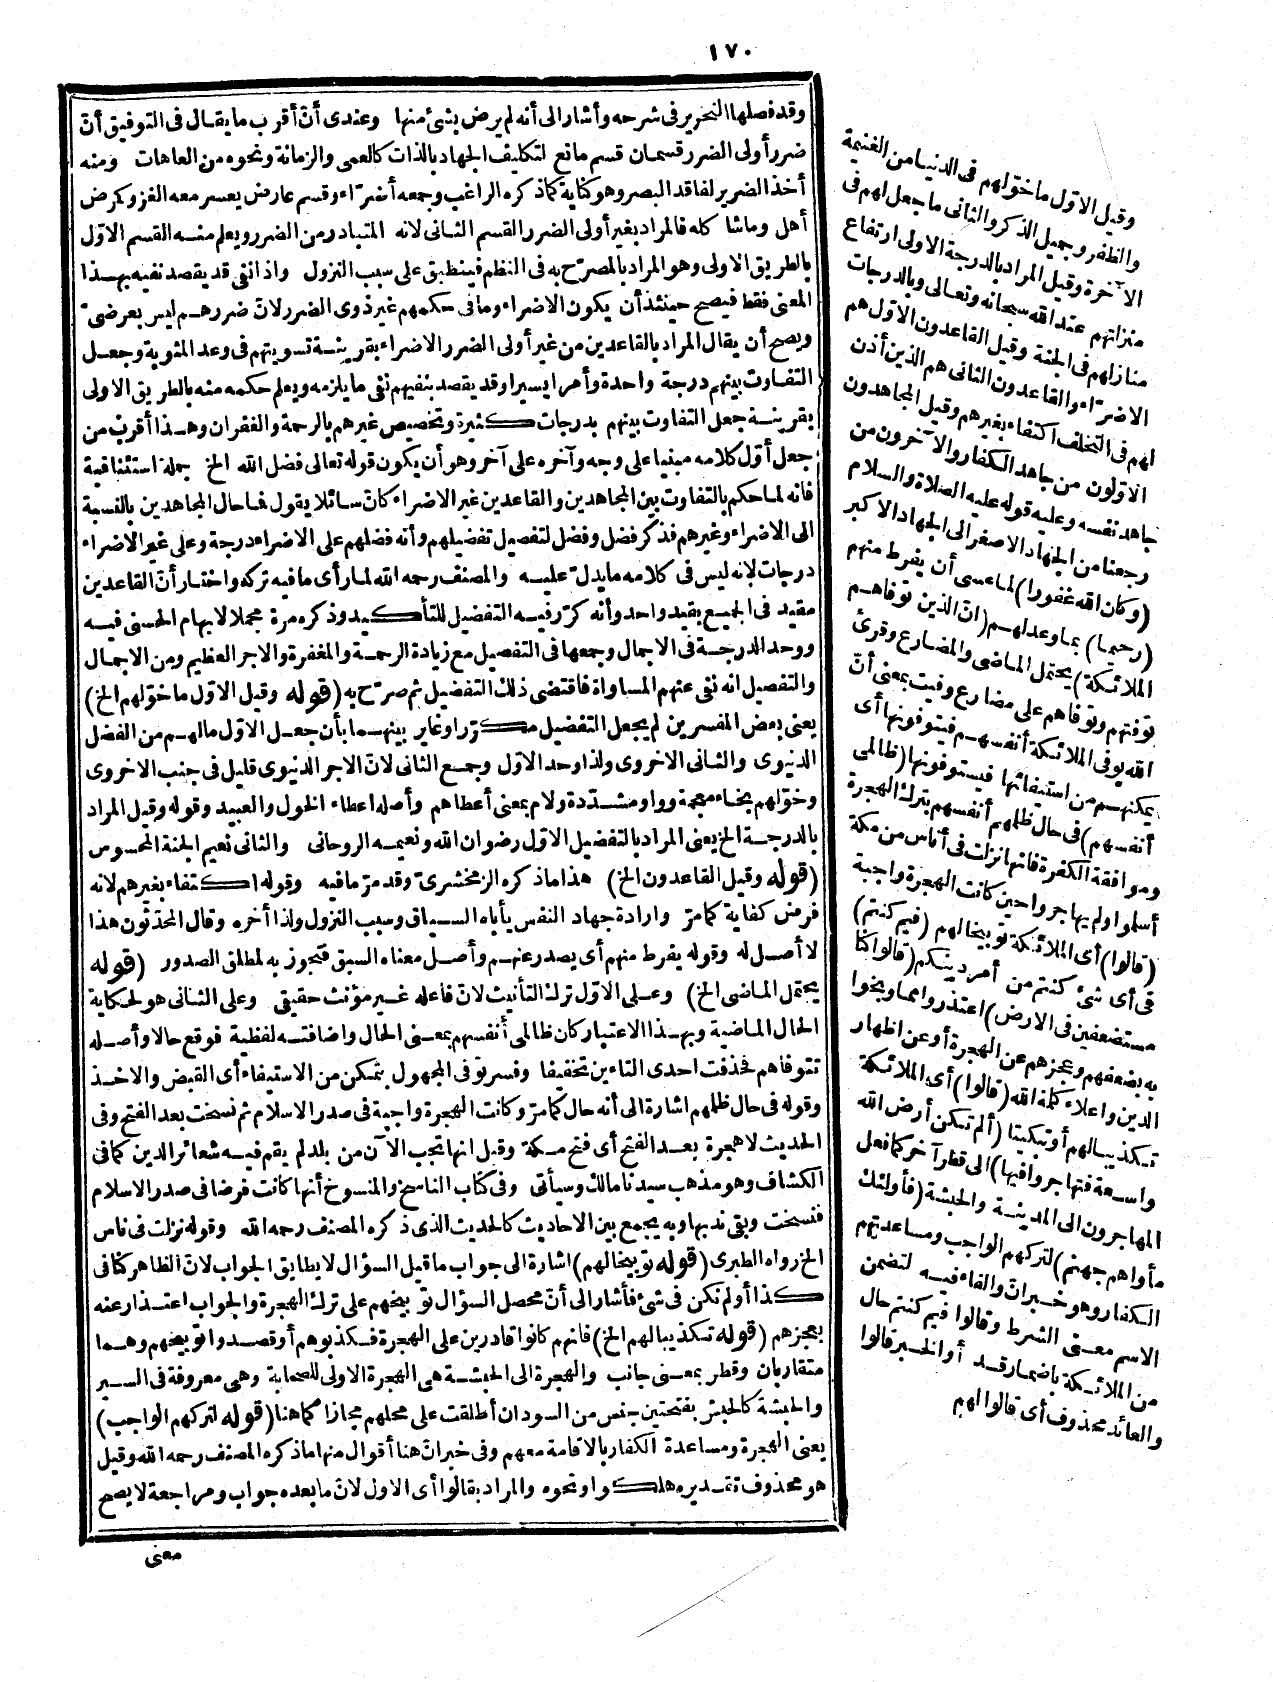 ١٧٠
وقد فصلها النحرير فى شرحه وأشار الى أنه لم يرض بشئ منها وعندى أنّ أقرب ما يقال فى التوفيق أنّ
ضرر أولى الضرر قسمان قسم مانع لتكليف الجهاد بالذات كالعمى والزمانة ونحوه من العاهات ومنه
أخذ الضرير لفاقد البصر وهو كناية كما ذكره الراغب وجمعه أضرّاء وقسم عارض يعسر معه الغزو كمرض
أهل وما شا كله فالمراد بغير أولى الضرر القسم الثانى لانه المتبادر من الضرر ويعلم منه القسم الاوّل
بالطريق الاولى وهو المراد بالمصرّح به فى النظم فينطبق على سبب النزول واذا نفى قد يقصد نفيه بهذا
المعنى فقط فيصح حينئذ أن يكون الاضراء وما فى حكمهم غير ذوى الضرر لانّ ضررهم ليس بعرضىّ
ويصح أن يقال المراد بالقاعدين من غير أولى الضرر الاضراء بقرينة تسويتهم فى وعد المثوبة وجعل
التفاوت بينهم درجة واحدة وأمرا يسيرا وقد يقصد بنفيهم نفى ما يلزمه ويعلم حكمه منه بالطريق الاولى
بقرينة جعل التفاوت بينهم بدرجات كثيرة وتخصيص غيرهم بالرحمة والغفران وهذا أقرب من
جعل أوّل كلامه مبنيا على وجه وآخره على آخر وهو أن يكون قوله تعالى فضل الله الخ جملة استئنافية
فانه لما حكم بالتفاوت بين المجاهدين والقاعدين غير الاضراء كانّ سائلا يقول فما حال المجاهدين بالنسبة
الى الاضراء وغيرهم فذكر فضل وفضل لتفصيل تفضيلهم وأنه فضلهم على الاضراء درجة وعلى غير الاضراء
درجات لانه ليس فى كلامه ما يدلّ عليه والمصنف رحمه الله لما رأى ما فيه تركه واختار أنّ القاعدين
مقيد فى الجميع بقيد واحد وأنه كرّر فيه التفضيل للتأكيد وذكره مرة مجملا لابهام الحسنى فيه
ووحد الدرجة فى الاجمال وجمعها فى التفصيل مع زيادة الرحمة والمغفرة والاجر العظيم ومن الاجمال
والتفصيل انه نفى عنهم المساواة فاقتضى ذلك التفضيل ثم صرّح به (قوله وقيل الاوّل ما خوّلهم الخ)
يعنى بعض المفسرين لم يجعل التفضيل مكرّرا وغاير بينهما بأن جعل الاوّل ما لهم من الفضل
الدنيوى والثانى الاخروى ولذا وحد الاوّل وجمع الثانى لانّ الاجر الدنيوى قليل فى جنب الاخروى
وخوّلهم بخاء معجمة وواو مشدّدة ولام بمعنى أعطاهم وأصله اعطاء الخول والعبيد وقوله وقيل المراد
بالدرجة الخ يعنى المراد بالتفضيل الاوّل رضوان الله ونعيمه الروحانى والثانى نعيم الجنة المحسوس
(قوله وقيل القاعدون الخ) هذا ما ذكره الزمخشرىّ وقد مرّ ما فيه وقوله اكتفاء بغيرهم لانه
فرض كفاية كما مرّ وارادة جهاد النفس يأباه السياق وسبب النزول ولذا أخره وقال المحدّثون هذا
لا أصل له وقوله يفرط منهم أى يصدر عنهم وأصل معناه السبق فتجوز به لمطلق الصدور (قوله
يحتمل الماضى الخ) وعلى الاوّل ترك التأنيث لانّ فاعله غير مؤنث حقيقى وعلى الثانى هو لحكاية
الحال الماضية وبهذا الاعتبار كان ظالمى أنفسهم بمعنى الحال واضافته لفظية فوقع حالا وأصله
تتوفاهم فحذفت احدى التاءين تخفيفا وفسر توفى المجهول بتمكن من الاستيفاء أى القبض والاخذ
وقوله فى حال ظلمهم اشارة الى أنه حال كما مرّ وكانت الهجرة واجبة فى صدر الاسلام ثم نسخت بعد الفتح وفى
الحديث لا هجرة بعد الفتح أى فتح مكة وقيل انها تجب الآن من بلد لم يقم فيه شعائر الدين كما فى
الكشاف وهو مذهب سيدنا مالك وسيأتى وفى كتاب الناسخ والمنسوخ أنها كانت فرضا فى صدر الاسلام
فنسخت وبقى ندبها وبه يجمع بين الاحاديث كالحديث الذى ذكره المصنف رحمه الله وقوله نزلت فى ناس
الخ رواه الطبرى (قوله توبيخا لهم) اشارة الى جواب ما قيل السؤال لا يطابق الجواب لانّ الظاهر كنا فى
كذا أولم نكن فى شئ فأشار الى أنّ محصل السؤال توبيخهم على ترك الهجرة والجواب اعتذار عنه
بعجزهم (قوله تكذيبا لهم الخ) فانهم كانوا قادرين على الهجرة فكذبوهم أو قصدوا توبيخهم وهما
متقاربان وقطر بمعنى جانب والهجرة الى الحبشة هى الهجرة الاولى للصحابة وهى معروفة فى السير
والحبشة كالحبش بفتحتين جنس من السودان أطلقت على محلهم مجازا كما هنا (قوله لتركهم الواجب)
يعنى الهجرة ومساعدة الكفار بالاقامة معهم وفى خبر انّ هنا أقوال منها ما ذكره المصنف رحمه الله وقيل
هو محذوف تقديره هلكوا ونحوه والمراد بقالوا أى الاول لانّ ما بعده جواب ومراجعة لا يصح
معنى
وقيل الاوّل ما خوّلهم فى الدنيا من الغنيمة
والظفر وجميل الذكر والثانى ما جعل لهم فى
الآخرة وقيل المراد بالدرجة الاولى ارتفاع
منزلتهم عند الله سبحانه وتعالى وبالدرجات
منازلهم فى الجنة وقيل القاعدون الاوّل هم
الاضرّاء والقاعدون الثانى هم الذين أذن
لهم فى التخلف اكتفاء بغيرهم وقيل المجاهدون
الاوّلون من جاهد الكفار والآخرون من
جاهد نفسه وعليه قوله عليه الصلاة والسلام
رجعنا من الجهاد الاصغر الى الجهاد الاكبر
(وكان الله غفورا) لما عسى أن يفرط منهم
(رحيما) بما وعد لهم (انّ الذين توفاهم
الملائكة) يحتمل الماضى والمضارع وقرئ
توفتهم وتوفاهم على مضارع وفيت بمعنى أنّ
الله يوفى الملائكة أنفسهم فيتوفونها أى
يمكنهم من استيفائها فيستوفونها (ظالمى
أنفسهم) فى حال ظلمهم أنفسهم بترك الهجرة
وموافقة الكفرة فانها نزلت فى أناس من مكة
أسلموا ولم يهاجروا حين كانت الهجرة واجبة
(قالوا) أى الملائكة توبيخا لهم (فيم كنتم)
فى أى شئ كنتم من أمر دينكم (قالوا كنا
مستضعفين فى الارض) اعتذروا مما وبخوا
به بضعفهم وعجزهم عن الهجرة أو عن اظهار
الدين واعلاء كلمة الله (قالوا) أى الملائكة
تكذيبا لهم أو تبكيتا (ألم تكن أرض الله
واسعة فتهاجروا فيها) الى قطر آخر كما فعل
المهاجرون الى المدينة والحبشة (فأولئك
مأواهم جهنم) لتركهم الواجب ومساعدتهم
الكفار وهو خبر انّ والفاء فيه لتضمن
الاسم معنى الشرط وقالوا فيم كنتم حال
من الملائكة باضمار قد أو الخبر قالوا
والعائد محذوف أى قالوا لهم